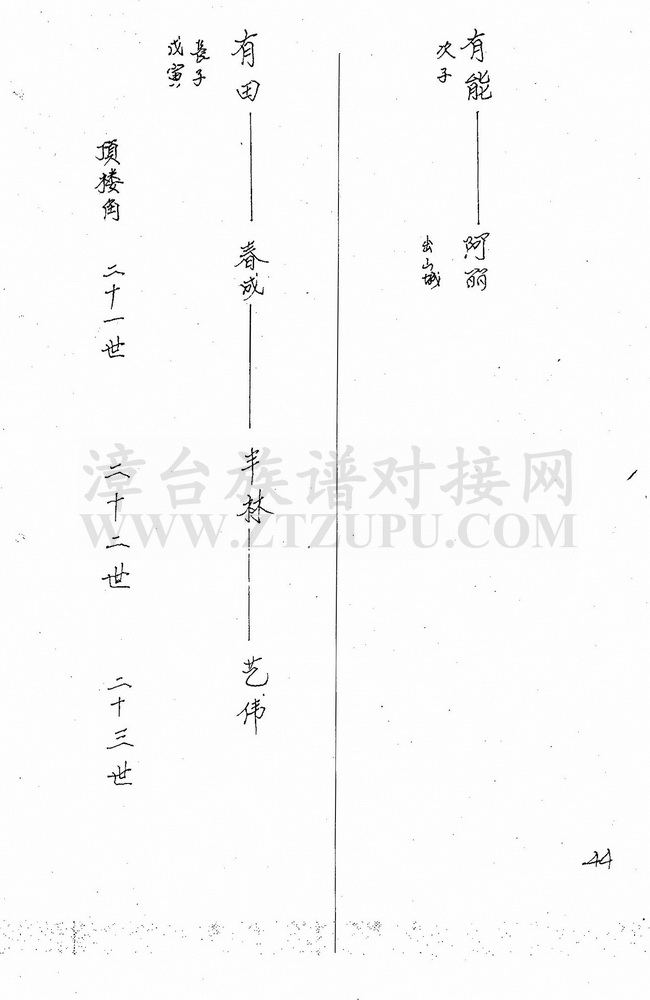 有能
次子
阿丽
出山城
有田
長子
戊寅
春成
半林
艺伟
頂楼角
二十一世
二十二世
二十三世
44
漳台族谱对接网
WWW.ZTZUPU.COM